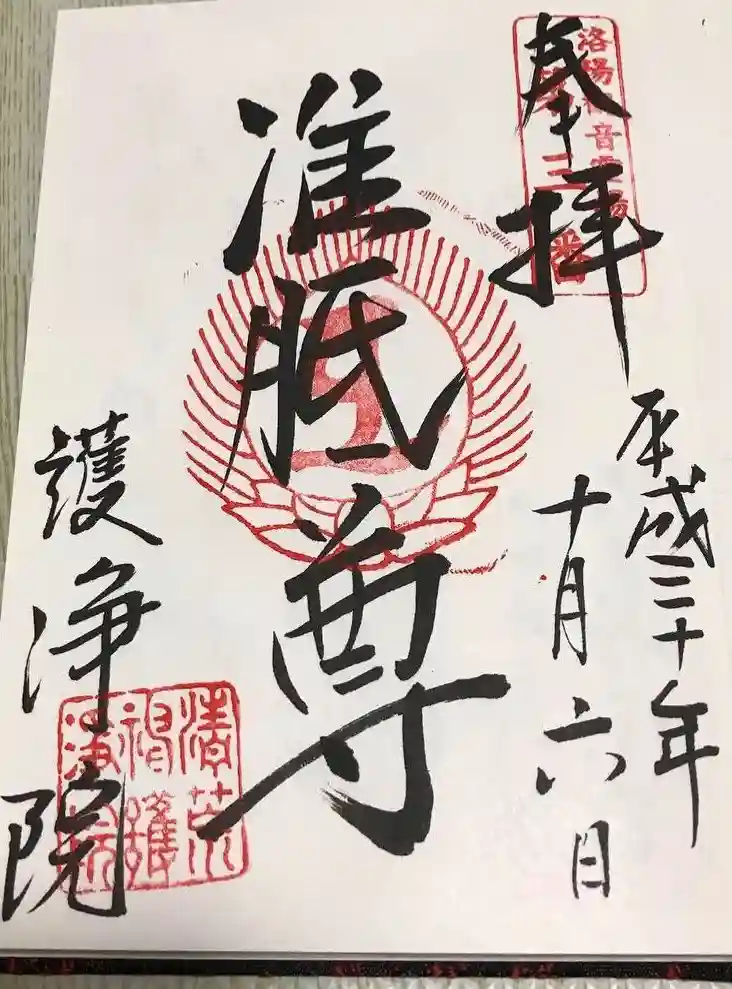 奉拝
洛陽観音霊場
第三番
平成三十年
十月六日
准胝尊
護浄院
清荒
神護
浄院